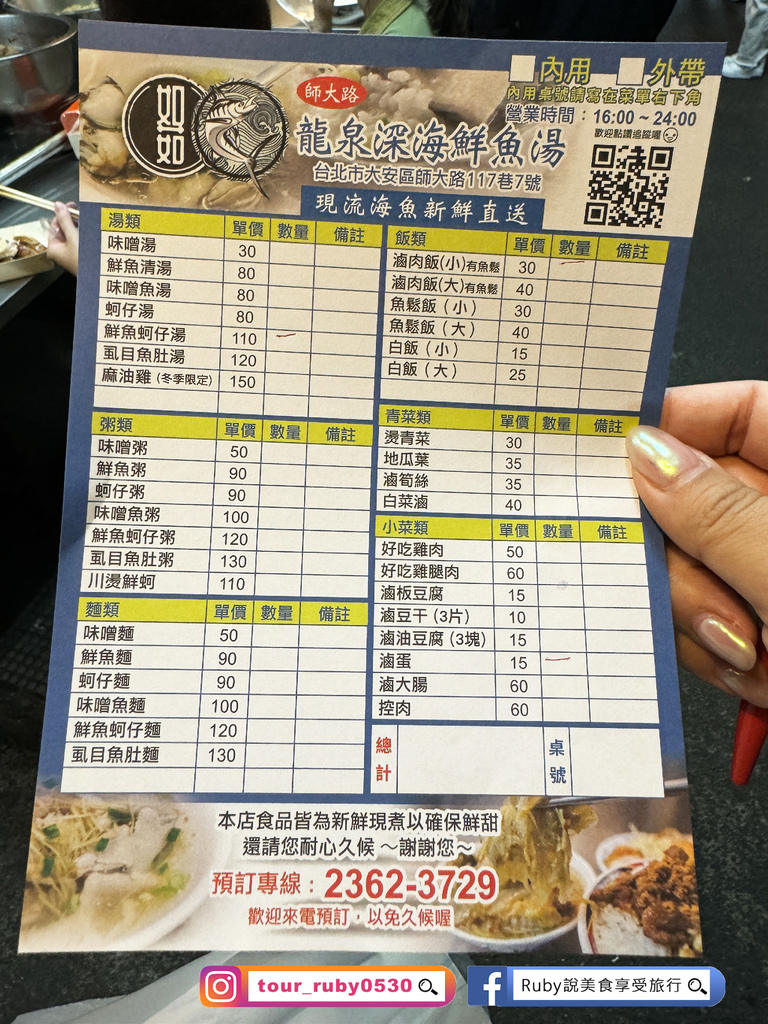 如如
師大路
龍泉深海鮮魚湯
台北市大安區師大路117巷7號
現流海魚新鮮直送
內用 外帶
內用桌號請寫在菜單右下角
營業時間：16:00～24:00
歡迎點讚追蹤喔
湯類 單價 數量 備註
味噌湯 30
鮮魚清湯 80
味噌魚湯 80
蚵仔湯 80
鮮魚蚵仔湯 110
虱目魚肚湯 120
麻油雞 (冬季限定) 150
粥類 單價 數量 備註
味噌粥 50
鮮魚粥 90
蚵仔粥 90
味噌魚粥 100
鮮魚蚵仔粥 120
虱目魚肚粥 130
川燙鮮蚵 110
麵類 單價 數量 備註
味噌麵 50
鮮魚麵 90
蚵仔麵 90
味噌魚麵 100
鮮魚蚵仔麵 120
虱目魚肚麵 130
飯類 單價 數量 備註
滷肉飯(小)有魚鬆 30
滷肉飯(大)有魚鬆 40
魚鬆飯（小） 30
魚鬆飯（大） 40
白飯（小） 15
白飯（大） 25
青菜類 單價 數量 備註
燙青菜 30
地瓜葉 35
滷筍絲 35
白菜滷 40
小菜類 單價 數量 備註
好吃雞肉 50
好吃雞腿肉 60
滷板豆腐 15
滷豆干 (3片) 10
滷油豆腐 (3塊) 15
滷蛋 15
滷大腸 60
控肉 60
總計 桌號
本店食品皆為新鮮現煮以確保鮮甜
還請您耐心久候～謝謝您～
預訂專線：2362-3729
歡迎來電預訂，以免久候喔
tour_ruby0530
Ruby說美食享受旅行